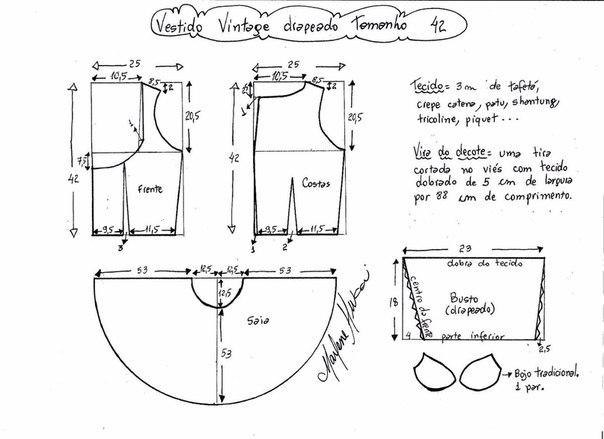 Vestido Vintage drapeado Tamanho 42
25
10,5
8,5
2
20,5
42
7,5
Frente
9,5
11,5
3
25
10,5
8,5
2
20,5
42
Costas
9,5
11,5
1
2
Tecido = 3 m de tafetá,
crepe catena, patu, shantung,
tricoline, piquet...
Vira do decote = uma tira
cortada no viés com tecido
dobrado de 5 cm de largura
por 88 cm de comprimento.
53
12,5
12,5
53
12,5
Saia
53
Marlene Mukai
23
dobra do tecido
18
centro da frente
Busto
(drapeado)
4
parte inferior
2,5
Bojo tradicional.
1 par.